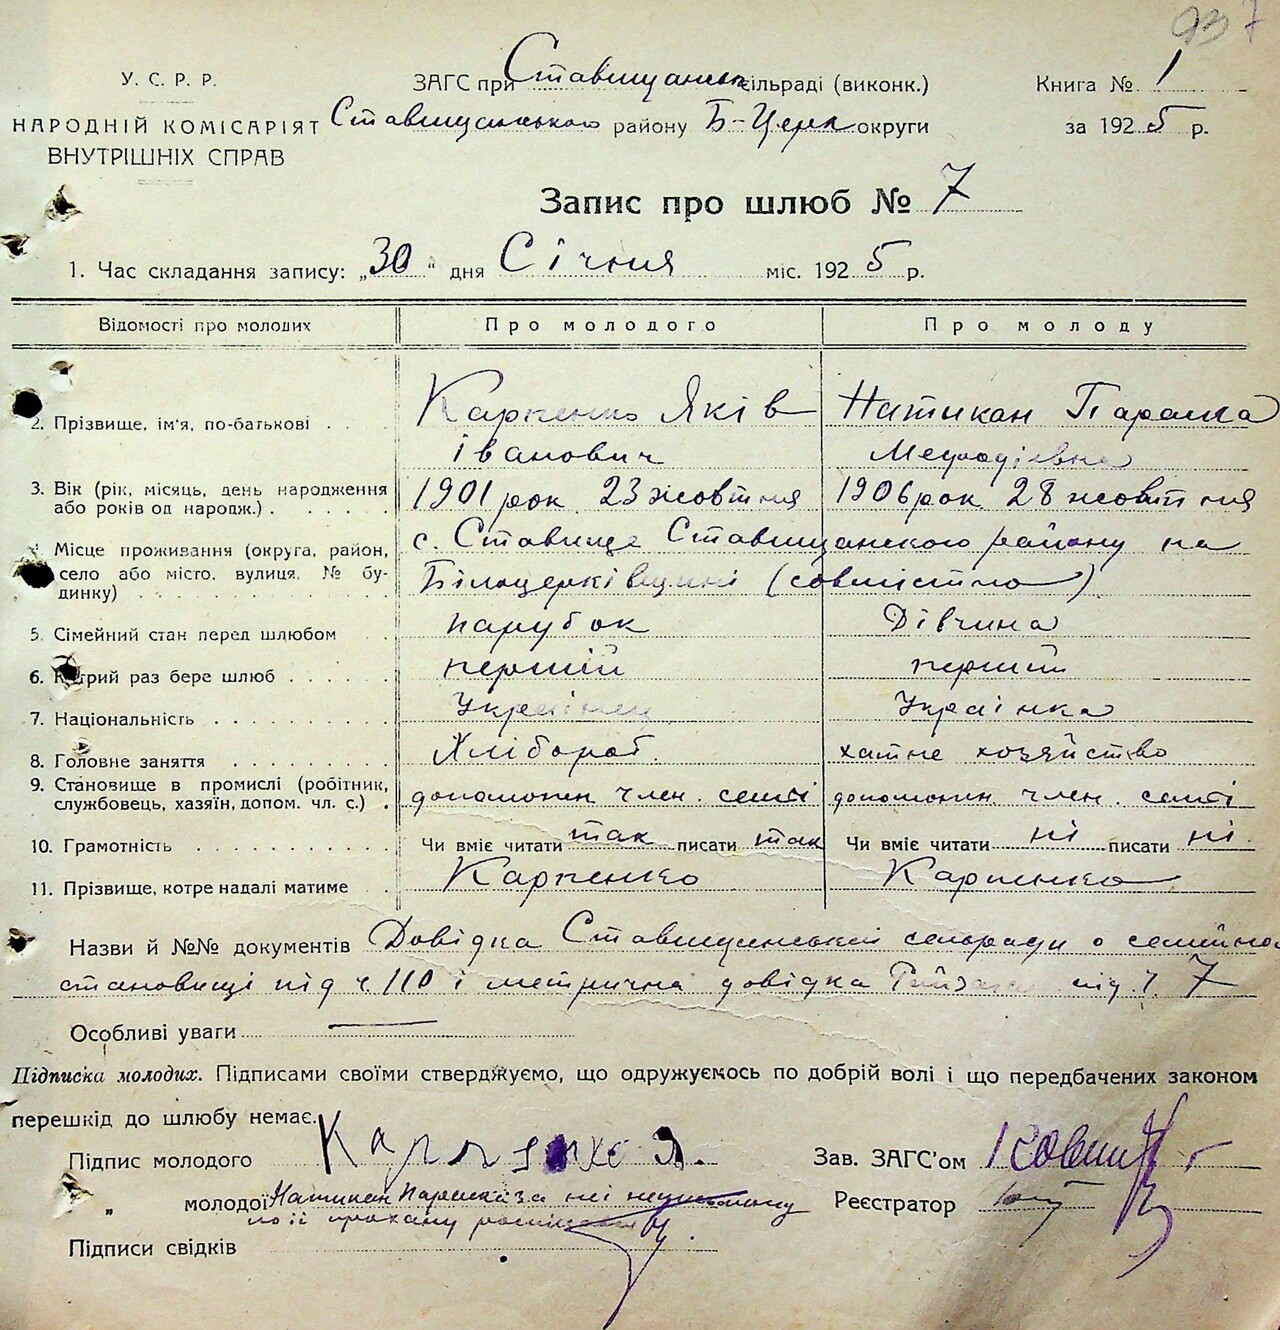 93 7
У. С. Р. Р.
НАРОДНІЙ КОМІСАРІЯТ
ВНУТРІШНІХ СПРАВ
ЗАГС при Ставищанськ сільраді (виконк.)
Ставищанського району Б-Церк округи
Книга № 1
за 1925 р.
Запис про шлюб № 7
1. Час складання запису: „30" дня Січня міс. 1925 р.
Відомості про молодих Про молодого Про молоду
2. Прізвище, ім'я, по-батькові . . . Карпенко Яків Іванович Натикан Параска Мефодієвна
3. Вік (рік, місяць, день народження або років од народж.) . . . . . 1901 рок 23 жовтня 1906 рок 28 жовтня
4. Місце проживання (округа, район, село або місто, вулиця, № будинку) . . . с. Ставище Ставищанского району на
Білоцерківщині (совмістно)
5. Сімейний стан перед шлюбом . парубок Дівчина
6. Котрий раз бере шлюб . . . . . . перший перший
7. Національність . . . . . . . . . Українец Українка
8. Головне заняття . . . . . . . . Хлібороб хатнє хозяйство
9. Становище в промислі (робітник, службовець, хазяїн, допом. чл. с.) . допоможн член. семті допоможн член. семті
10. Грамотність . . . . . . . . . . Чи вміє читати так писати так Чи вміє читати ні писати ні.
11. Прізвище, котре надалі матиме . Карпенко Карпенко
Назви й №№ документів Довідка Ставищанської сельради о семейном
становищі під ч. 110 і метрична довідка під ч. 7
Особливі уваги —
Підписка молодих. Підписами своїми стверджуємо, що одружуємось по добрій волі і що передбачених законом
перешкід до шлюбу немає.
Підпис молодого Карпенко Я.
Зав. ЗАГС'ом
„ молодої Натикан Параска за неї неписьменну
по її проханю росписався
Реєстратор
Підписи свідків